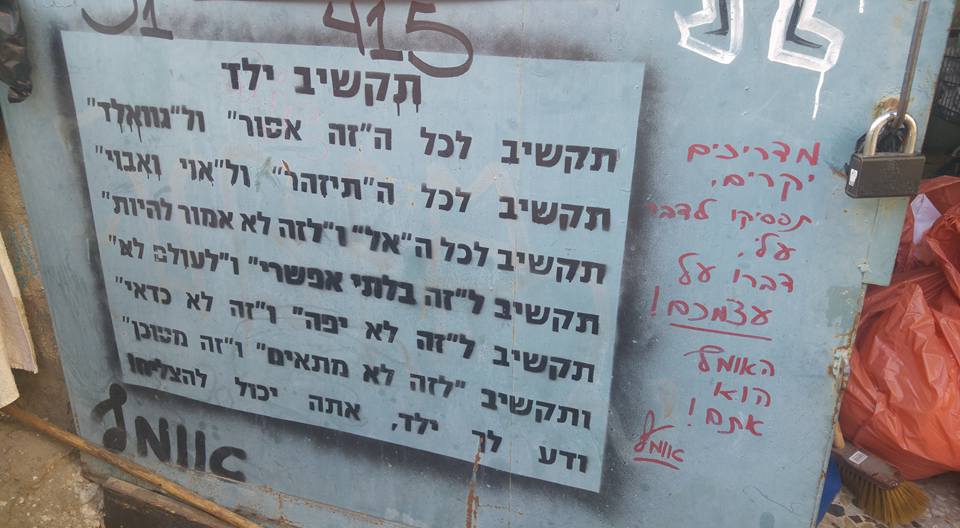 415
תקשיב ילד
תקשיב לכל ה"זה אסור" ול"גוואלד"
תקשיב לכל ה"תיזהר" ול"אוי ואבוי"
תקשיב לכל ה"אל" ו"לזה לא אמור להיות"
תקשיב ל"זה בלתי אפשרי" ו"לעולם לא"
תקשיב ל"זה לא יפה" ו"זה לא כדאי"
ותקשיב "לזה לא מתאים" ו"זה מסוכן"
ודע לך ילד, אתה יכול להצליח!
אומל
מדריכים
יקרים,
תפסיקו לדבר
עלי.
דברו על
עצמכם!
האומל
הוא
אתם!
אומל